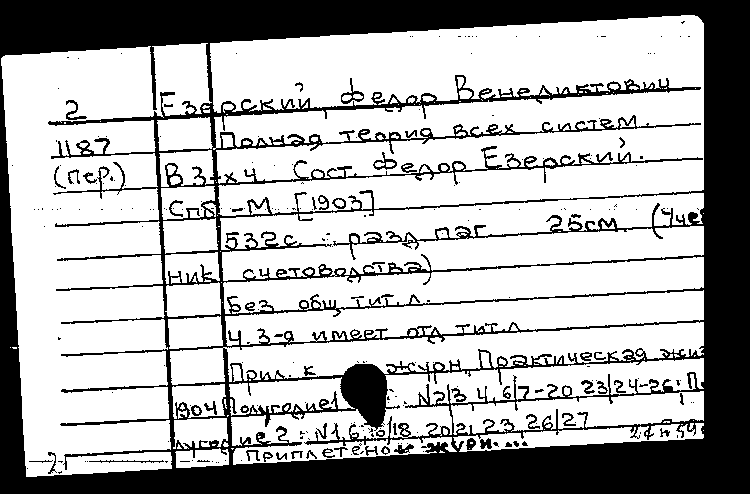 2 Езерский, Федор Венедиктович
1187 Полная теория всех систем.
(пер.) В 3-х ч. Сост. Федор Езерский.
Спб -М [1903]
532с. разд. паг. 25см (Учеб
ник счетоводства)
Без общ. тит. л.
Ч. 3-я имеет отд тит. л
Прил. к журн. Практическая жиз
1904 Полугодие 1 N2/3, 4, 6/7-20, 23/24-26; По
лугодие 2 : N1, 6, 16/18, 20/21, 23, 26/27
Приплетено к журн....